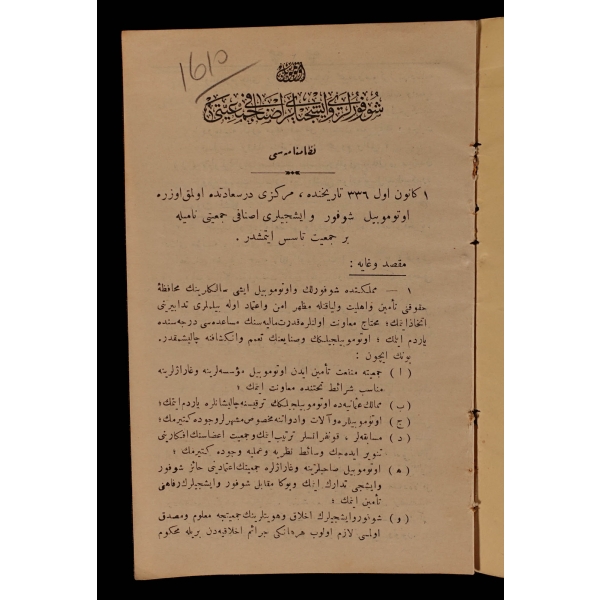 1610
اوتوموبیل
شوفورلری و ایشجیلری اصنافی جمعیتی
نظامنامه‌سی
١ کانون اول ٣٣٦ تاریخنده ، مرکزی درسعادتده اولمق اوزره
اوتوموبیل شوفور و ایشجیلری اصنافی جمعیتی نامیله
بر جمعیت تاسس ایتمشدر .
مقصد و غایه :
١ – مملکتده شوفورلك و اوتوموبیل ایشی سالکلرینك محافظهٔ
حقوقنی تأمین و اهلیت و لیاقتله مظهر امن و اعتماد اوله بیلملری تدابیرینی
اتخاذ ایتمك ؛ محتاج معاونت اولانلره قدرت مالیه‌سنك مساعده‌سی درجه‌سنده
یاردم ایتمك ؛ اوتوموبیلجیلكك و صنایعنك تعمم و انکشافنه چالیشمقدر .
بونك ایچون :
( ا ) جمعیته منفعت تأمین ایدن اوتوموبیل مؤسسه‌لرینه و غاراژلرینه
مناسب شرائط تحتنده معاونت ایتمك ؛
( ب ) ممالك عثمانیه‌ده اوتوموبیلجیلكك ترقیسنه چالیشانلره یاردم ایتمك ؛
( ج ) اوتوموبیللره و آلات و ادواتنه مخصوص مشهرلر وجوده کتیرمك ؛
( د ) مسابقه‌لر ، قونفرانسلر ترتیب ایتمك و جمعیت اعضاسنك افکارینی
تنویر ایده‌جك وسائط نظریه و عملیه وجوده کتیرمك ؛
( ه ) اوتوموبیل صاحبلرینه و غاراژلره جمعیتك اعتمادینی حائز شوفور
و ایشجی تدارك ایتمك و بوکا مقابل شوفور و ایشجیلرك رفاهنی
تأمین ایتمك ؛
( و ) شوفور و ایشجیلرك اخلاق و هویتلرینك جمعیتجه معلوم و مصدق
اولمسی لازم اولوب هر هانکی جرائم اخلاقیه‌دن بریله محکوم